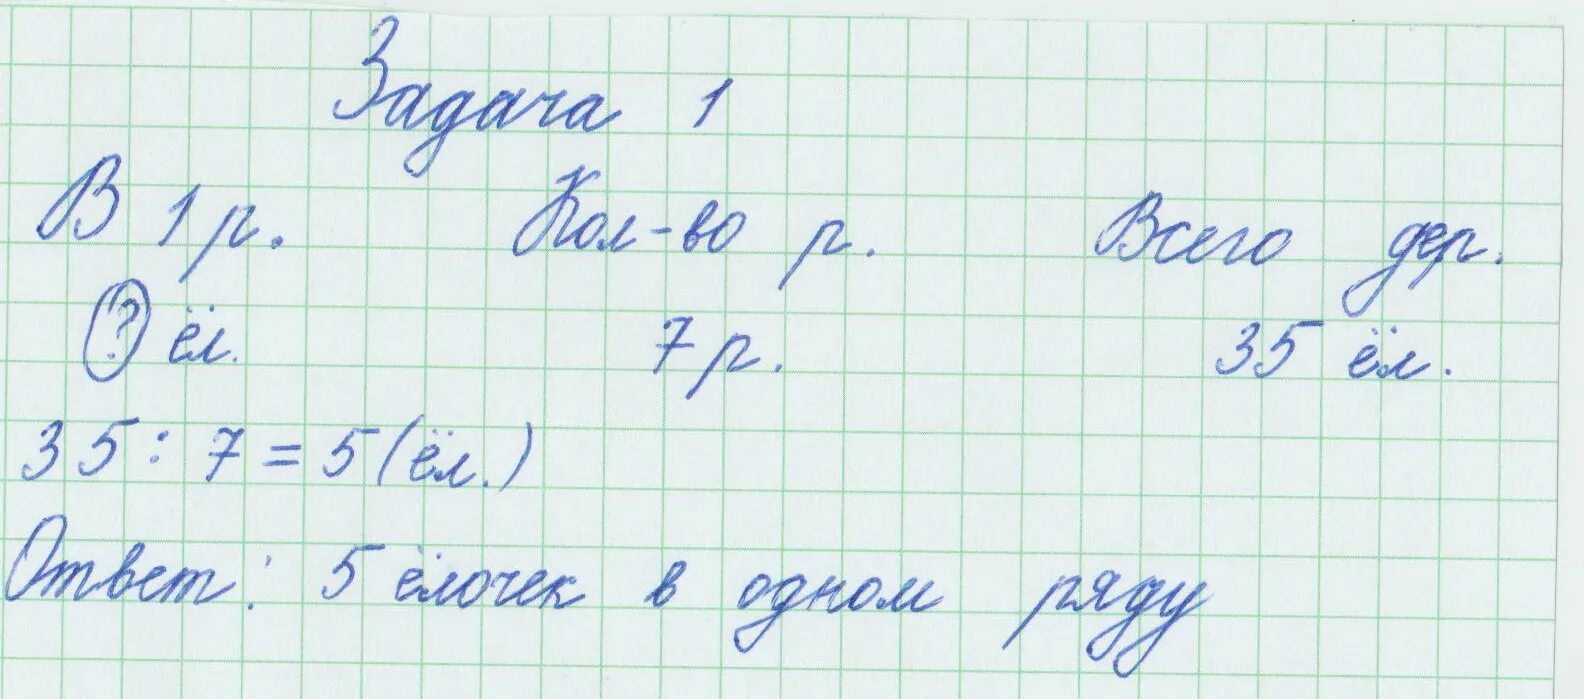 Задача 1
В 1 р. Кол-во р. Всего дер.
? ёл. 7 р. 35 ёл.
35 : 7 = 5 (ёл.)
Ответ: 5 ёлочек в одном ряду